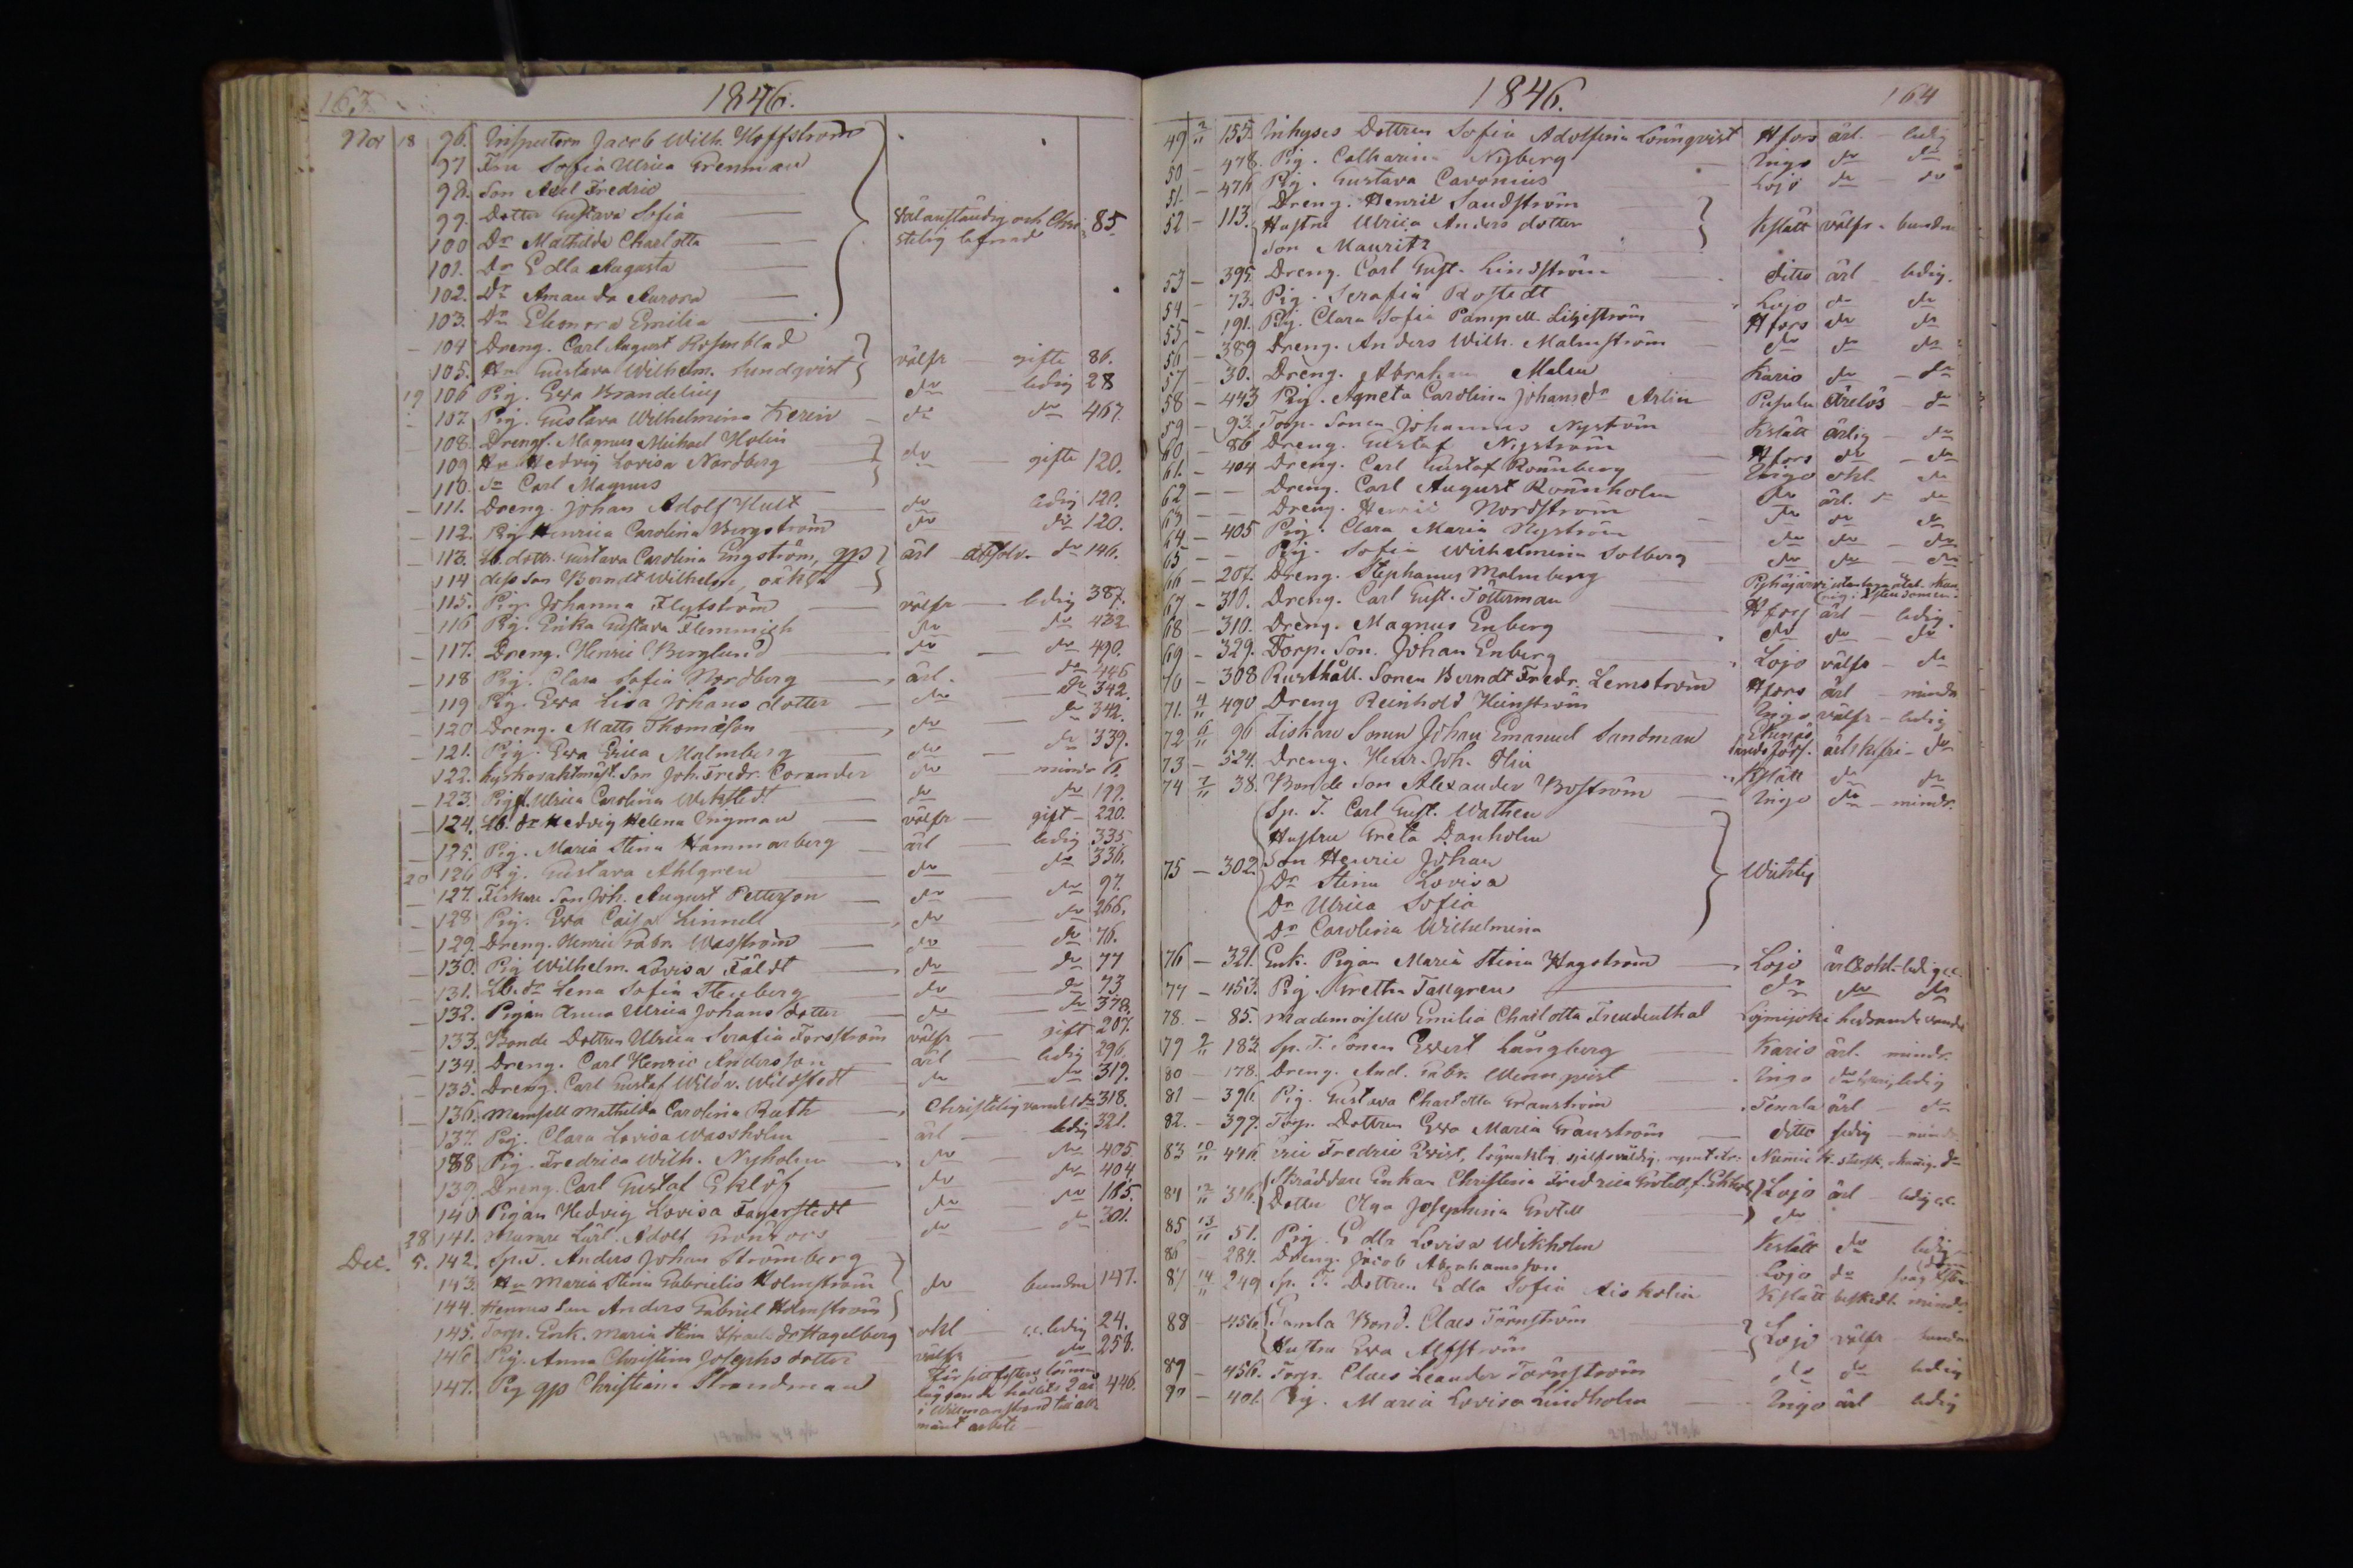 163
1846.
Nov 18 96. Inspectorn Jacob Wilh. Hoffström
97 Fru Sofia Ulrica Grenman
98. Son Axel Fredric
99. Dotter Gustava Sofia
100 Dr Mathilda Charlotta
Välanständig och Chri-
stelig lefnad 85
101. Dr Edla Augusta
102. Dr Amanda Aurora
103. Dr Eleonora Emilia
104 Dreng. Carl August Rosenblad
105. Hu Gustava Wilhelm. Lundqvist välfr gifte 86.
19 106 Pig. Eva Brandelius do ledig 28
107 Pig. Gustava Wilhelmina do do 467.
108. Drengf. Magnus Michael Holin
109 Hu Hedvig Lovisa Nordberg do gifte 120.
110. sn Carl Magnus
111. Dreng. Johan Adolf Hult do ledig 120.
112. Pig Henrica Carolina Bergström do do 120.
113. dottr. Gustava Carolina Engström, gp ärl absolv. do 146.
114 dess son Berndt Wilhelm, oäkta
115. Pig. Johanna Flytström välfr ledig 387.
116 Pig. Erika Gustava Flemmich do do 432
117. Dreng. Henric Berglund do do 490.
118 Pig. Clara Sofia Nordberg ärl. do 446
119 Pig. Eva Lisa Johans dotter do do 342.
120 Dreng. Matts Thomasson do do 342.
121. Pig. Eva Erica Malmberg do do 339.
122. Kyrkovaktmäst. Son Joh. Fredr. Corander do mindr
123. Pig. Ulrica Carolina Wikstedt do do 199.
124. dr Hedvig Helena Ingman välfr gift 220.
125. Pig. Maria Stina Hammarberg ärl ledig 335
20 126 Pig. Gustava Ahlgren do do 336.
127. Fiskare Son Joh. August Petterson do do 97.
128 Pig. Eva Caisa Linnell do do 266.
129. Dreng. Henric Gabr. Wasström do do 76.
130. Pig Wilhelm. Lovisa Fäldt do do 77
131. dr Lena Sofia Stenberg do do 73
132. Pigan Anna Ulrica Johans dotter do do 378.
133. Bonde Dottren Ulrica Serafia Forsström välfr gift 207.
134. Dreng. Carl Henric Andersson ärl ledig 296.
135. Dreng. Carl Gustaf Wild v. Wildstedt do do 319.
136. Mamsell Mathilda Carolina Ruth Christelig vandel do 318.
137. Pig. Clara Lovisa Wassholm ärl ledig 321.
138 Pig. Fredrica Wilh. Nyholm do do 405.
139. Dreng. Carl Gustaf Eklöf do do 404.
140 Pigan Hedvig Lovisa Fagerstedt do do 185.
28 141. Murare Lärl. Adolf Grönfors do do 301.
Dec. 5. 142. Sp.T. Anders Johan Strömberg
143. Hu Maria Stina Gabrielis Holmström do bundne 147.
144. Hennes Son Anders Gabriel Holmström
145. Torp. Enk. Maria Stina Israels dr Hagelberg okl ledig 24.
146 Pig. Anna Christina Josephs dotter välfr do 258.
147. Pig gp Christiana Strandman för sitt lefnad 446.
hållits 2 år
i Willmanstrand till all-
mänt arbete
1846.
164
49 2/11 155. Inhyses Dottren Sofia Adolfina Lönnqvist Hfors ärl. ledig
50 478. Pig. Catharina Nyberg Ingo do do
51. 476 Pig. Gustava Cavonius Lojo do do
Dreng. Henric Sandström
52 113. Hustru Ulrica Anders dotter Kslätt välfr. bundne
Son Mauritz
53 395. Dreng. Carl Gust. Lindström ditto ärl ledig.
54 73. Pig. Serafia Rostedt Lojo do do
55 191. Pig. Clara Sofia Pampell. Liljeström Hfors do do
56 389 Dreng. Anders Wilh. Malmström do do do
57 30. Dreng. Abraham Malm Karis do do
58 443 Pig. Agneta Carolina Johans dr Arlin Pusula ärelös do
59 93. Torp. Sonen Johannes Nyström Kslätt ärlig do
60 86 Dreng. Gustaf Nyström Hfors do do
61. 404 Dreng. Carl Gustaf Rönnberg Ingo okl. do
62 Dreng. Carl August Rönnholm do ärl. do
63 Dreng. Henric Nordström do do do
64 405 Pig. Clara Maria Nyström do do do
65 Pig. Sofia Wilhelmina Solberg do do do
66 207. Dreng. Stephanus Malmberg Pyhäjärvi
67 310. Dreng. Carl Gust. Tötterman Hfors ärl ledig.
68 310. Dreng. Magnus Enberg do do do
69 329. Torp. Son. Johan Enberg Lojo välfr do
70 308 Rusthåll. Sonen Berndt Fredr. Lemström Hfors ärl mindr
71. 4/11 490 Dreng Reinhold Heinström Ingo välfr ledig
72 6/11 96 Fiskare Sonen Johan Emanuel Sandman Ekenäs landsförs. do
73 324. Dreng. Henr. Joh. Flin Kslätt do do
74 7/11 38. Bonde Son Alexander Boström Ingo do mindr.
Sp. T. Carl Gust. Wathen
Hustru Greta Danholm
75 302. Son Henric Johan Wichtis
Dr Stina Lovisa
Dr Ulrica Sofia
Dr Carolina Wilhelmina
76 321. Enk. Pigan Maria Stina Hagström Lojo ärl okl. ledig
77 453. Pig. Gretha Tallgren do do do
78. 85. Mademoiselle Emilia Charlotta Freudenthal Lojo hedrande vandel
79 9/11 182 Sp. T. Sonen Evert Långberg Karis ärl. mindr.
80 178. Dreng. And. Gabr. Wennqvist Ingo do ledig
81 396. Pig. Gustava Charlotta Granström Tenala ärl do
82. 397. Torp. Dottren Eva Maria Granström ditto ledig mindr
83 10/11 446. Eric Fredric Qvist, lösaktig, sjelfsvåldig,
Skräddare Enkan Christina Fredrica Grotell f. Ekholm Lojo ärl ledig
84 12/11 316. Dotter Olga Josephina Grotell do
85 13/11 51. Pig. Edla Lovisa Wikholm Kslätt do ledig
86 284. Dreng. Jacob Abrahamsson Lojo do
87 14/11 249 Sp. T. Dottren Edla Sofia Kslätt beskedl. mindr
88 456. Gamla Bond. Claes Törnström
Hustru Eva Alfström Lojo välfr bundne
89 456. Torp. Claes Leander Törnström do do ledig
90 401. Pig. Maria Lovisa Lindholm Ingo ärl ledig